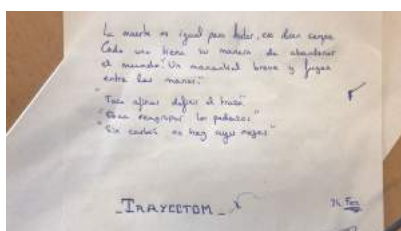 La muerte es igual para todos, eso dicen siempre
Cada uno tiene su manera de abandonar
el mundo. Un manantial breve y fugaz
entre las manos."
"Toca afinar, definir el trazo"
"Toca reagrupar los pedazos"
"Sin caos no hay
_TRAYECTOM_